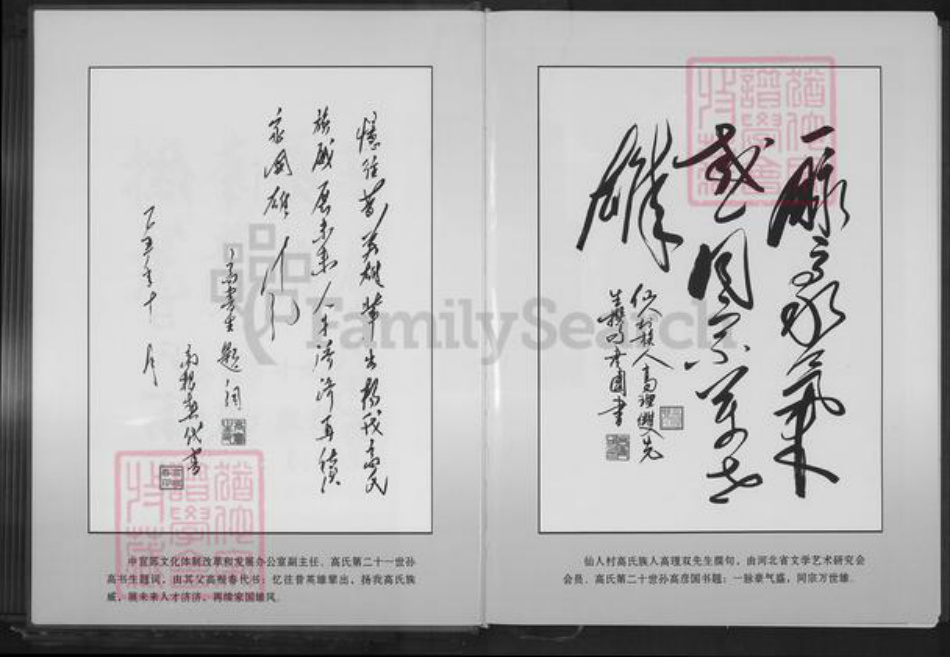 憶往昔英雄輩出揚我高氏
族威展未来人才濟濟再续
家国雄风
高書生题词
高根春代書
一脉豪氣
盛同宗万世
雄
仙人村族人高理雙先
生撰句彦国書
FamilySearch
中宣部文化体制改革和发展办公室副主任、高氏第二十一世孙
高书生题词，由其父高根春代书：忆往昔英雄辈出，扬我高氏族
威，展未来人才济济，再续家国雄风。
仙人村高氏族人高理双先生撰句，由河北省文学艺术研究会
会员、高氏第二十世孙高彦国书题：一脉豪气盛，同宗万世雄。